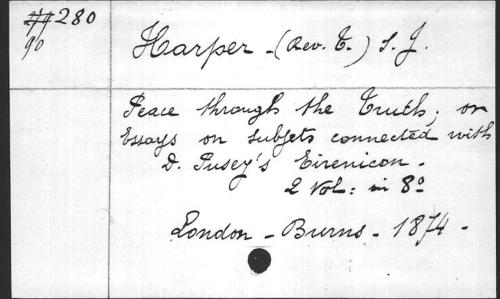 280
90
Harper - (Rev. T.) S. J.
Peace through the Truth; or
Essays on subjets connected with
D. Pusey's Eirenicon.
2 Vol: in 8º
London - Burns - 1874 -